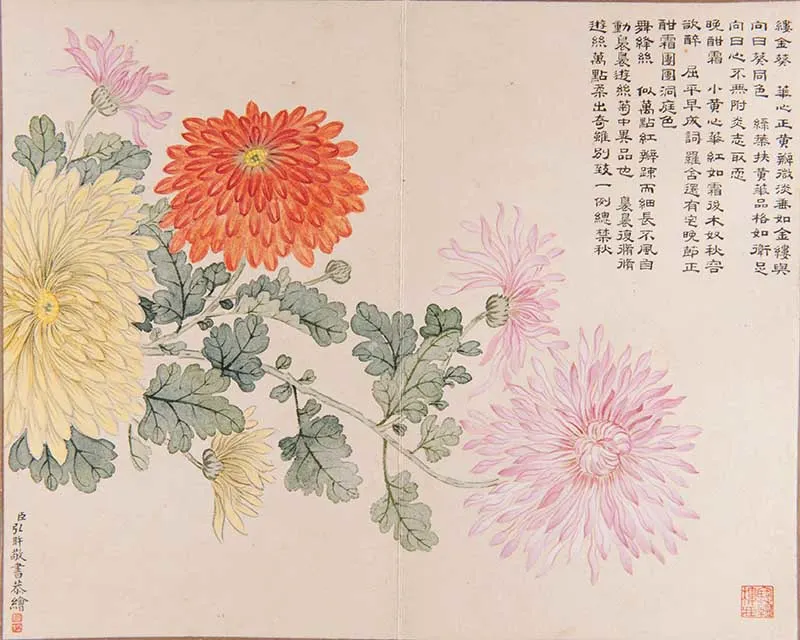 縷金葵 華心正黃瓣微淡垂如金縷與
向日葵同色 綠葉扶黃華品格如衛足
向日心不無附炎志取恧
晚酣霜 小黃心華紅如霜後木奴秋容
欲醉 屈平早成詞羅含還有宅晚節正
酣霜團團洞庭色
舞絳絲 似萬點紅瓣踈而細長不風自
動裊裊遊絲菊中異品也 裊裊復
遊絲萬點柔出奇雖別致一例總禁秋
臣弘旿敬書恭繪